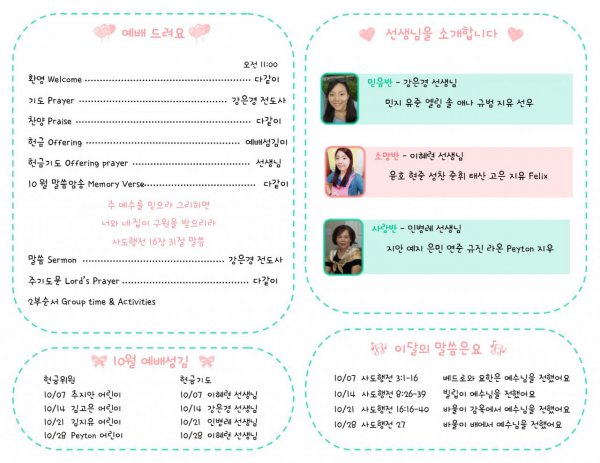 예배 드려요
오전 11:00
환영 Welcome ........................ 다같이
기도 Prayer ........................ 강은경 전도사
찬양 Praise ........................ 다같이
헌금 Offering ........................ 예배섬김이
헌금기도 Offering prayer ........................ 선생님
10 월 말씀암송 Memory Verse........................ 다같이
주 예수를 믿으라 그리하면
너와 네 집이 구원을 받으리라
사도행전 16장 31절 말씀
말씀 Sermon ........................ 강은경 전도사
주기도문 Lord's Prayer ........................ 다같이
2부순서 Group time & Activities
선생님을 소개합니다
믿음반 - 강은경 선생님
민지 유준 엘림 솔 애나 규범 지유 선우
소망반 - 이혜련 선생님
윤호 현준 성찬 준휘 태산 고은 지유 Felix
사랑반 - 민병례 선생님
지안 예지 은민 연준 규진 라온 Peyton 지우
10월 예배섬김
헌금위원 헌금기도
10/07 추지안 어린이 10/07 이혜련 선생님
10/14 김고은 어린이 10/14 강은경 선생님
10/21 김지유 어린이 10/21 민병례 선생님
10/28 Peyton 어린이 10/28 이혜련 선생님
이달의 말씀은요
10/07 사도행전 3:1-16 베드로와 요한은 예수님을 전했어요
10/14 사도행전 8:26-39 빌립이 예수님을 전했어요
10/21 사도행전 16:16-40 바울이 감옥에서 예수님을 전했어요
10/28 사도행전 27 바울이 배에서 예수님을 전했어요